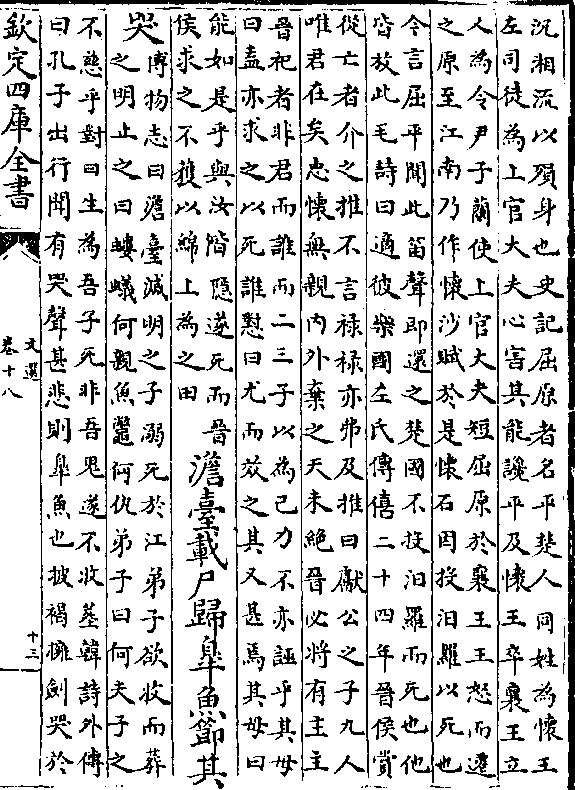 沉湘流以殞身也史記屈原者名平楚人同姓為懷王
左司徒為上官大夫心害其能讒平及懷王卒襄王立
人為令尹子蘭使上官大夫短屈原於襄王王怒而遷
之原至江南乃作懷沙賦於是懷石因投汨羅以死也
今言屈平聞此笛聲即還之楚國不投汨羅而死也他
皆放此毛詩曰適彼樂國左氏傳僖二十四年晉侯賞
從亡者介之推不言禄禄亦弗及推曰獻公之子九人
唯君在矣忠懷無親内外棄之天未絶晉必將有主主
晉祀者非君而誰而二三子以為己力不亦誣乎其母
曰盍亦求之以死誰懟曰尤而效之其又甚焉其母曰
能如是乎與汝偕隱遂死而晉
侯求之不獲以綿上為之田
澹臺載尸歸臯魚節其
哭
博物志曰澹臺滅明之子溺死於江弟子欲收而葬
之明止之曰螻蟻何親魚鼈何仇弟子曰何夫子之
不慈乎對曰生為吾子死非吾鬼遂不收葬韓詩外傳
曰孔子出行聞有哭聲甚悲則臯魚也披褐擁劍哭於
欽定四庫全書
文選
卷十八
十三